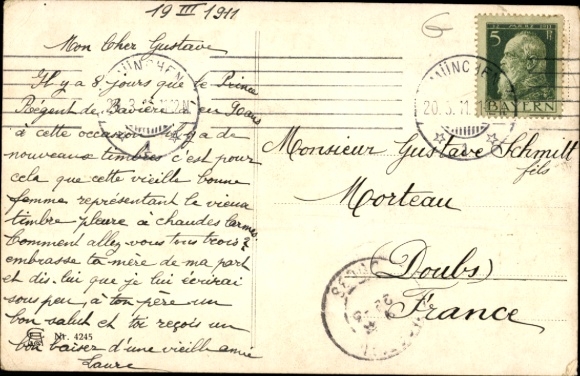 19 III 1911
6
Mon Cher Gustave
Il y a 8 jours que le Prince
Régent de Bavière a eu 90 ans
à cette occasion il y a de
nouveaux timbres c'est pour
cela que cette vieille bonne
femme représentant le vieux
timbre pleure à chaudes larmes.
Comment allez-vous tous trois?
embrasse ta mère de ma part
et dis-lui que je lui écrirai
sous peu, à ton père un
bon salut et toi reçois un
bon baiser d'une vieille amie
Laure
Nr. 4245
MÜNCHEN
1
MÜNCHEN
20.3.11.
1
5 Pf
BAYERN
Monsieur Gustave Schmitt
fils
Morteau
(Doubs)
France
DOUBS